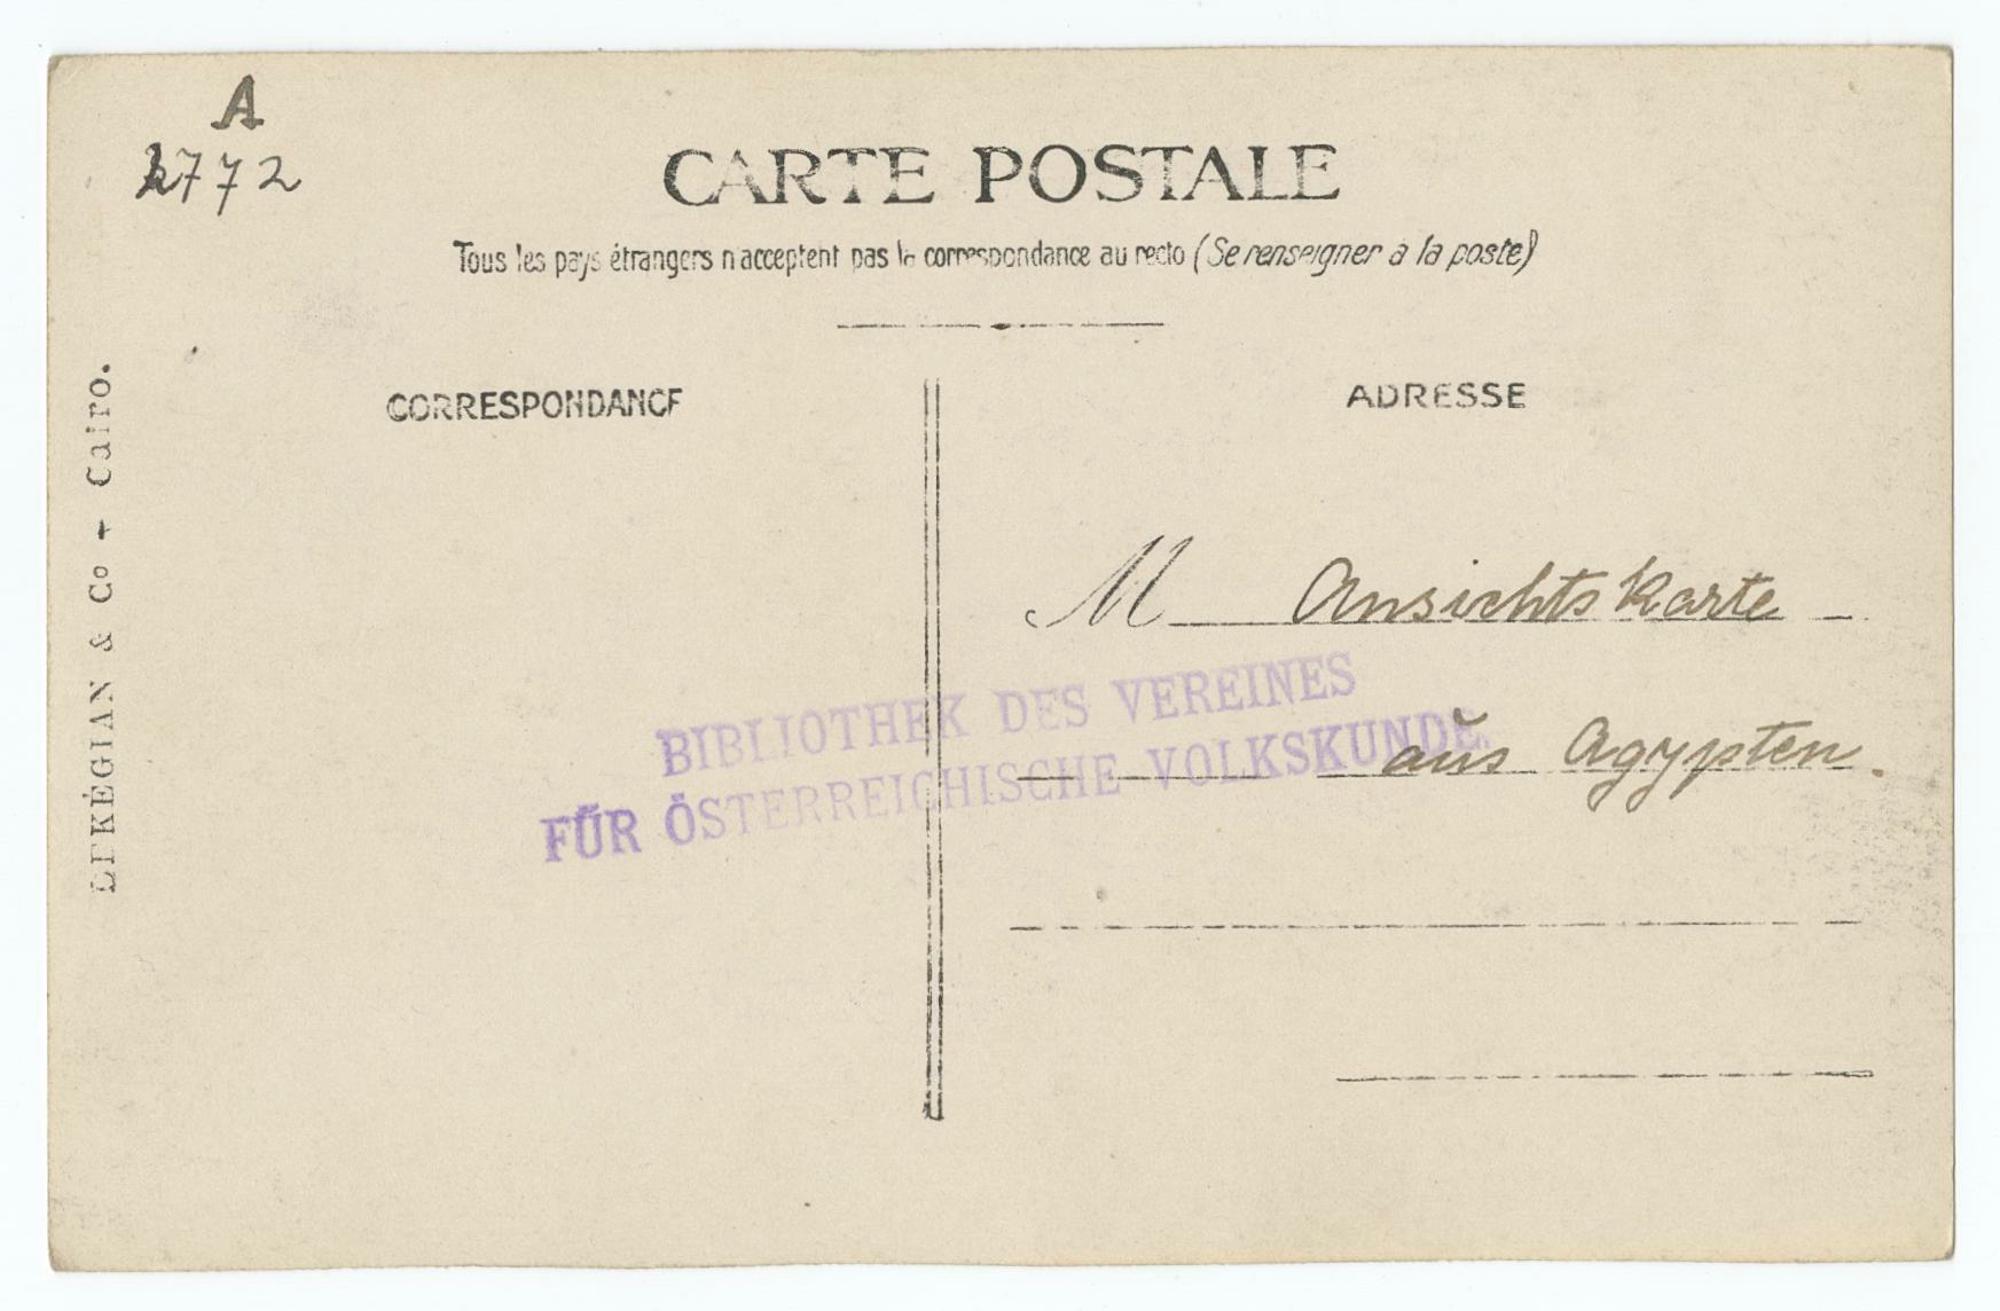 A
2772
CARTE POSTALE
Tous les pays étrangers n'acceptent pas la correspondance au recto (Se renseigner à la poste)
CORRESPONDANCE
ADRESSE
LEKÉGIAN & Co - Cairo.
M Ansichtskarte
aus Agypten.
BIBLIOTHEK DES VEREINES
FÜR ÖSTERREICHISCHE VOLKSKUNDE.